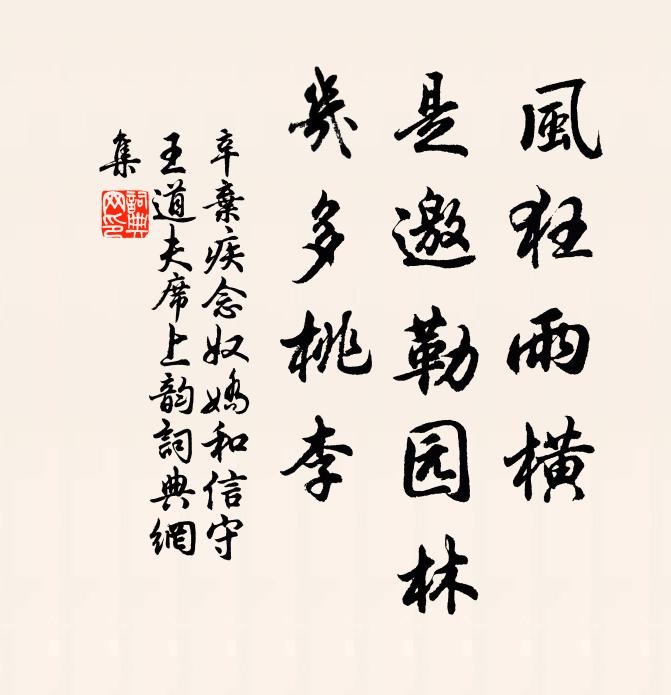 風狂雨橫
是邀勒园林
幾多桃李
辛棄疾念奴嬌和信守
王道夫席上韵詞典網
集
詞典
网印